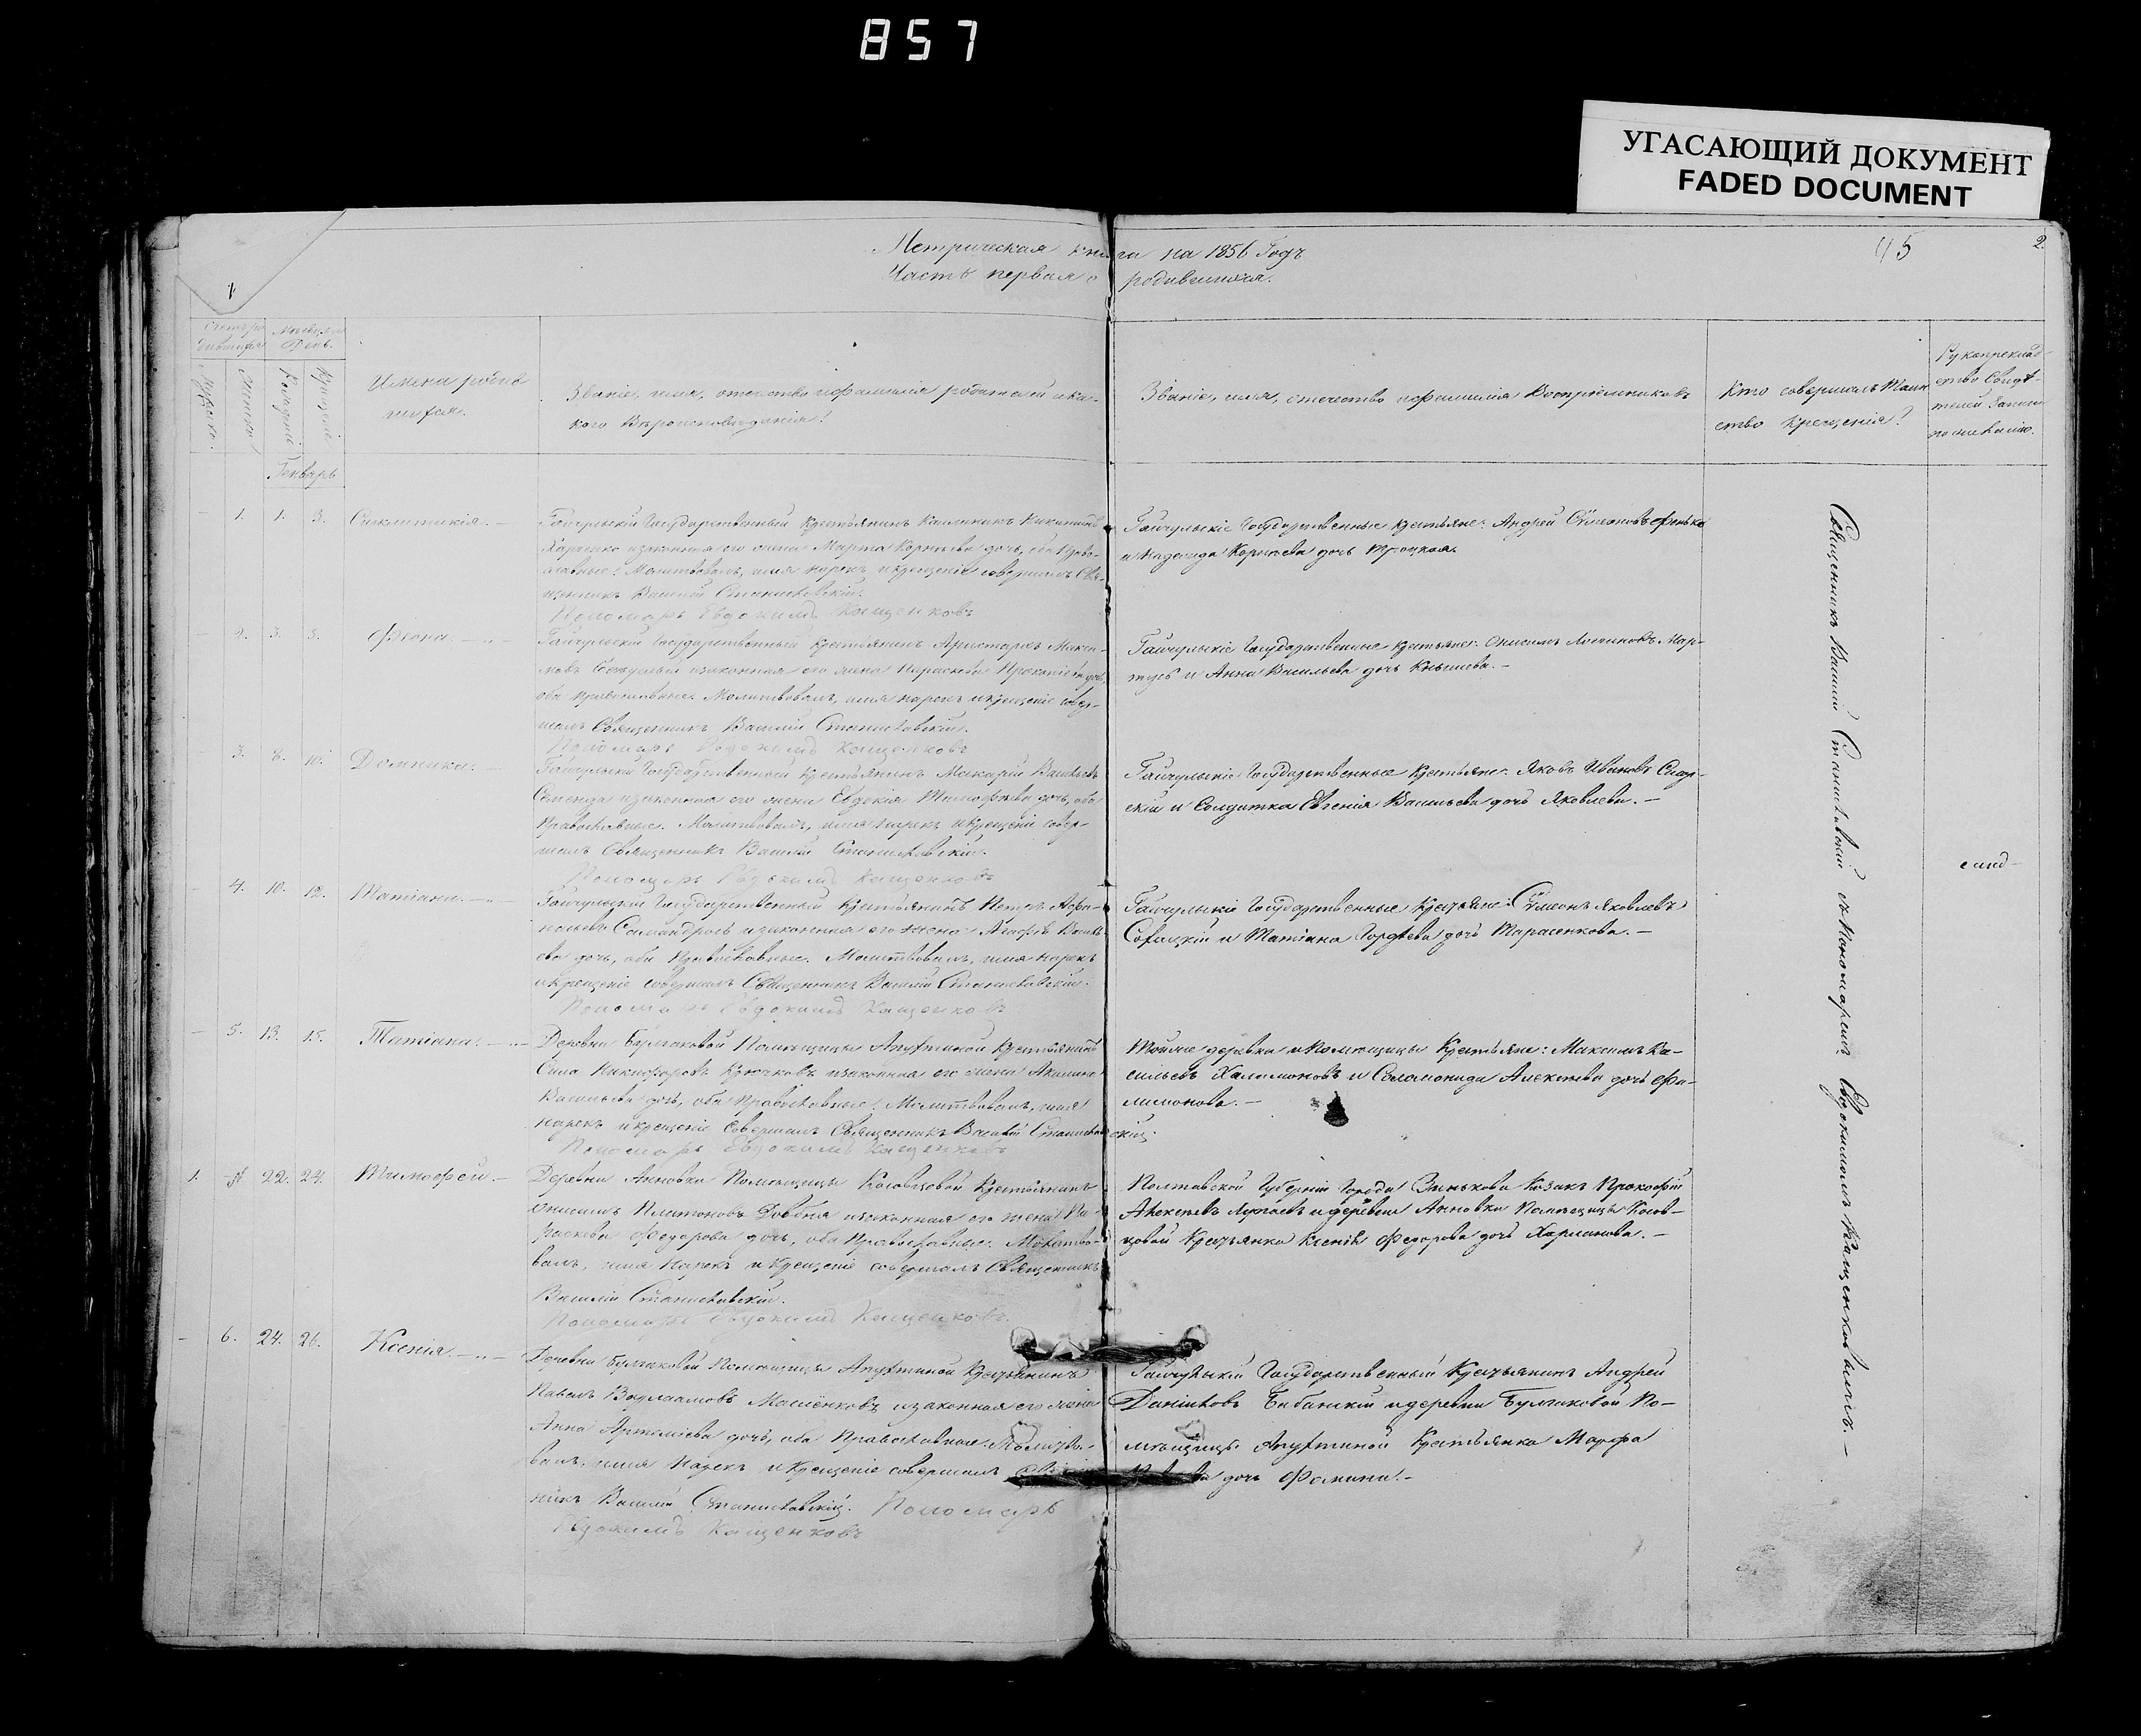 857
УГАСАЮЩИЙ ДОКУМЕНТ
FADED DOCUMENT
Метрическая книга на 1856 Годъ
45
2.
Часть первая о родившихся.
1
Мѣсяцъ и День.
Мужеска.
Женска.
Рожденія.
Крещенія.
Имена родившихся.
Званіе, имя, отечество и фамилія родителей и какого Вѣроисповѣданія?
Званіе, имя, отечество и фамилія Воспріемниковъ
Кто совершалъ Таинство Крещенія?
Рукоприкладство Свидѣтелей
Генварь
1. 1. 3. Синклитикія.
Гайчулскій Государственный Крестьянинъ Каллиникъ Никитинъ
Харченко и законная его жена Марта Корнѣева дочь, оба Право-
славные. Молитвовалъ, имя нарекъ и крещеніе совершалъ Свя-
щенникъ Василій Станиславскій.
Пономарь Евдокимъ Кащенковъ
Гайчулскіе Государственные Крестьяне: Андрей Сѵмеоновъ Фенько
и Надежда Корнѣева дочь Троцкая.
2. 3. 5. Феона.
Гайчулскій Государственный Крестьянинъ Аристархъ Макси-
мовъ и законная его жена Параскева Прокопіева дочь,
оба Православные. Молитвовалъ, имя нарекъ и крещеніе совер-
шалъ Священникъ Василій Станиславскій.
Пономарь Евдокимъ Кащенковъ
Гайчулскіе Государственные Крестьяне: Онисимъ Логиновъ Мар-
тусь и Анна Васильева дочь Кнышева.
3. 8. 10. Домника.
Гайчулскій Государственный Крестьянинъ Макарій Васильевъ
Семенда и законная его жена Евдокія Тимофѣева дочь, оба
Православные. Молитвовалъ, имя нарекъ и крещеніе совер-
шалъ Священникъ Василій Станиславскій.
Пономарь Евдокимъ Кащенковъ
Гайчулскіе Государственные Крестьяне: Яковъ Ивановъ
и Солдатка Евгенія Васильева дочь Яковлева.
4. 10. 12. Татіана.
Гайчулскій Государственный Крестьянинъ Петръ Афа-
насьевъ и законная его жена Агафія Василь-
ева дочь, оба Православные. Молитвовалъ, имя нарекъ
и крещеніе совершалъ Священникъ Василій Станиславскій.
Пономарь Евдокимъ Кащенковъ
Гайчулскіе Государственные Крестьяне: Сѵмеонъ Яковлевъ
и Татіана Гордѣева дочь Тарасенкова.
5. 13. 15. Татіана.
Деревни Булгаковой Помѣщицы Апухтиной Крестьянинъ
Сила Никифоровъ Крючковъ и законная его жена Акилина
Васильева дочь, оба Православные. Молитвовалъ, имя
нарекъ и крещеніе совершалъ Священникъ Василій Станиславскій.
Пономарь Евдокимъ Кащенковъ
Тойже деревни и Помѣщицы Крестьяне: Максимъ Ва-
сильевъ Халимоновъ и Соломонида Алексѣева дочь Фи-
лимонова.
1. 22. 24. Тимофей.
Деревни Анновки Помѣщицы Косовцовой Крестьянинъ
Онисимъ Платоновъ Довбня и законная его жена Па-
раскева Федорова дочь, оба Православные. Молитво-
валъ, имя нарекъ и крещеніе совершалъ Священникъ
Василій Станиславскій.
Пономарь Евдокимъ Кащенковъ
Полтавской Губерніи Города Зинькова Козакъ Прокофій
Алексѣевъ и деревни Анновки Помѣщицы Косов-
цовой Крестьянка Ксенія Федорова дочь Харланова.
6. 24. 26. Ксенія.
Деревни Булгаковой Помѣщицы Апухтиной Крестьянинъ
Павелъ Варлаамовъ Машенковъ и законная его жена
Анна Артеміева дочь, оба Православные. Молитво-
валъ, имя нарекъ и крещеніе совершалъ
никъ Василій Станиславскій. Пономарь
Евдокимъ Кащенковъ
Гайчулскій Государственный Крестьянинъ Андрей
Даниловъ Бабанскій и деревни Булгаковой По-
мѣщицы Апухтиной Крестьянка Марфа
дочь Фомина.
Священникъ Василій Станиславскій съ Пономаремъ Евдокимомъ Кащенковымъ.